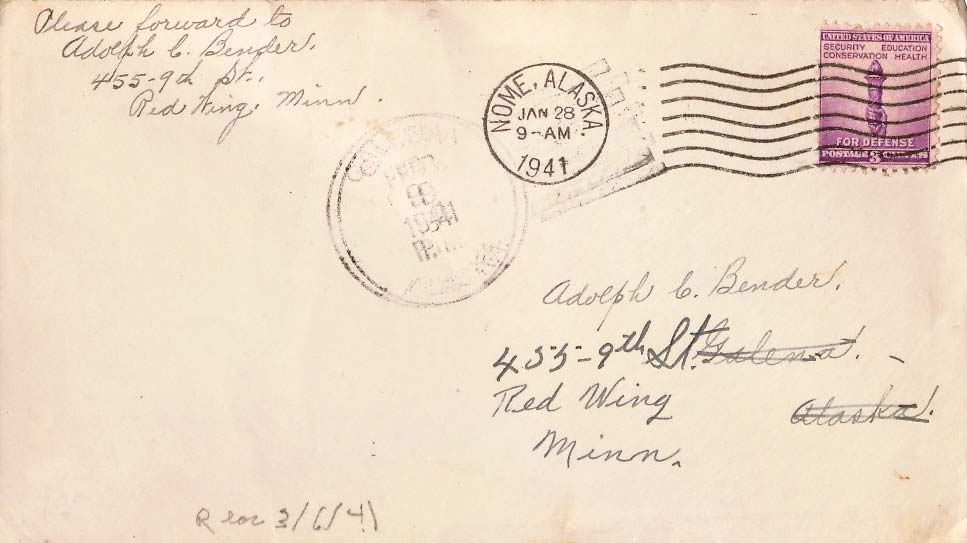 Please forward to
Adolph C. Bender.
455-9th St.,
Red Wing, Minn.
NOME, ALASKA.
JAN 28
9-AM
1941
UNITED STATES OF AMERICA
SECURITY EDUCATION
CONSERVATION HEALTH
FOR DEFENSE
POSTAGE 3 CENTS
1941
Adolph C. Bender,
455-9th St. Galena.
Red Wing Alaska.
Minn.
Rec 3/6/41